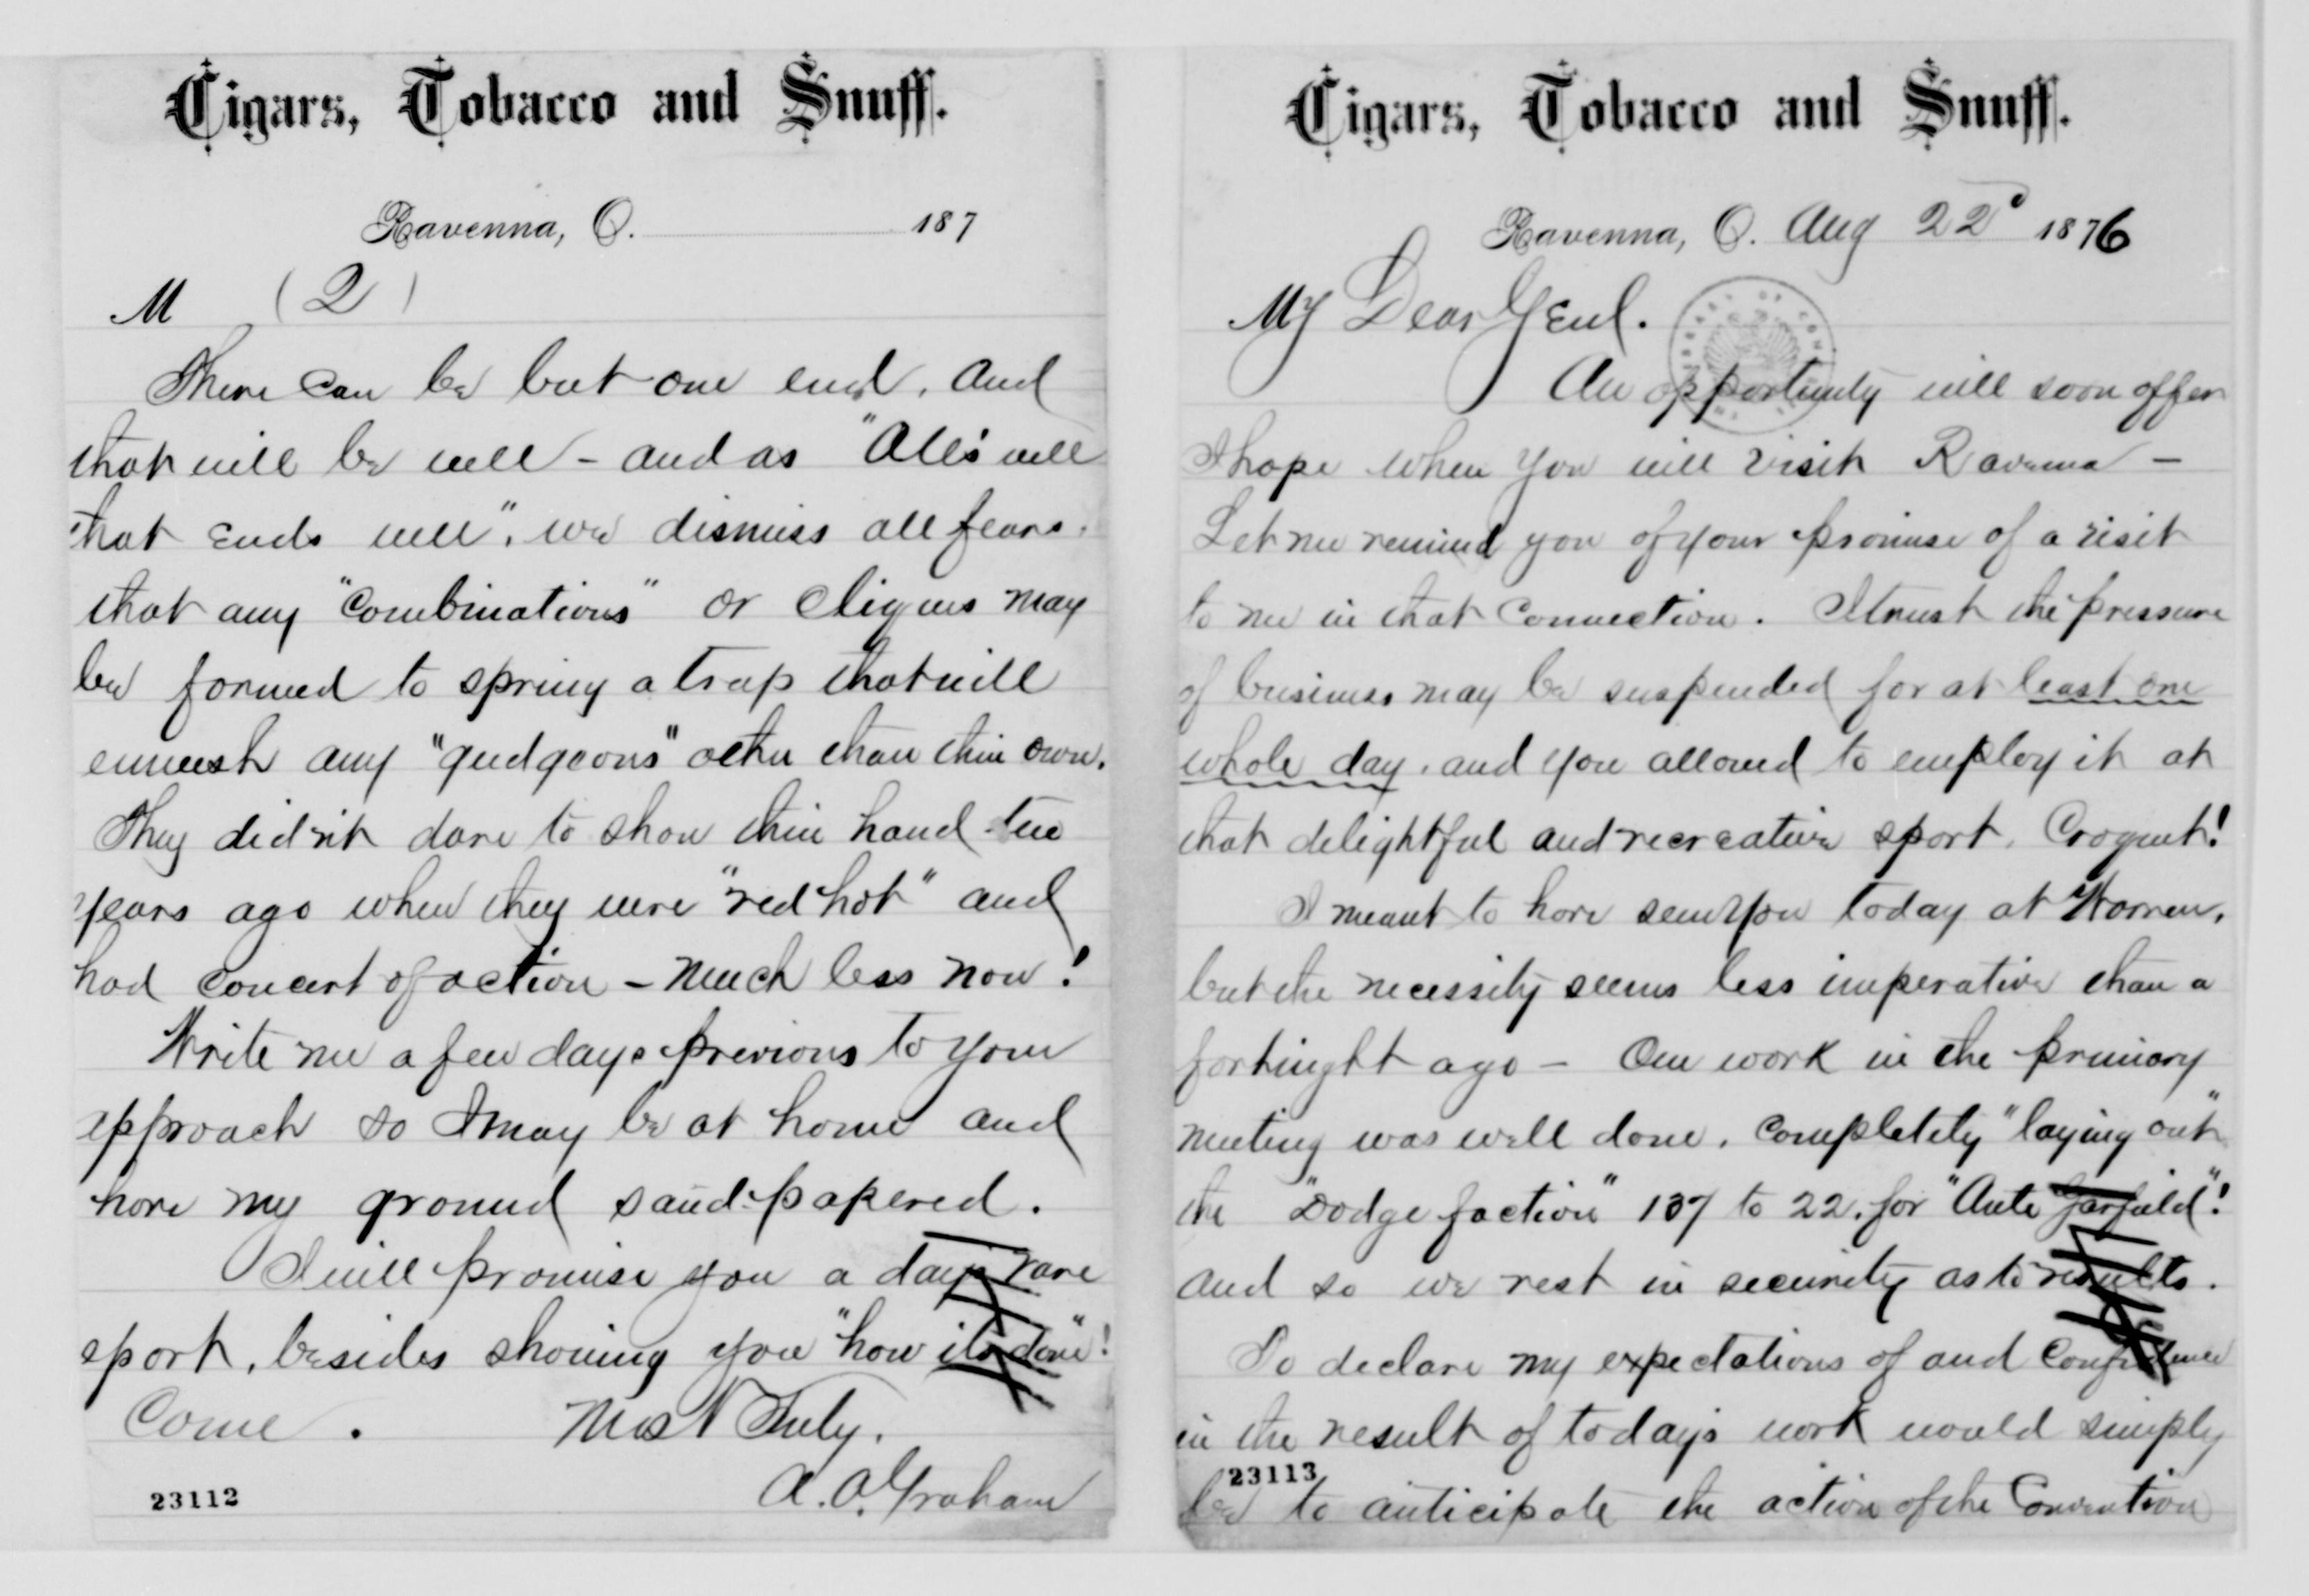 Cigars, Tobacco and Snuff.
Ravenna, O. Aug 22d 1876
My Dear Genl.
An opportunity will soon offer
I hope when you will visit Ravenna –
Let me remind you of your promise of a visit
to me in that connection. I trust the pressure
of business may be suspended for at least one
whole day, and you allowed to employ it at
that delightful and recreative sport, Croquet!
I meant to have seen you today at Warren,
but the necessity seems less imperative than a
fortnight ago – Our work in the primary
meeting was well done, completely "laying out"
the "Dodge faction" 137 to 22, for "Ante Garfield"!
and so we rest in security as to results.
To declare my expectations of and confidence
in the result of todays work would simply
be to anticipate the action of the Convention
23113
Cigars, Tobacco and Snuff.
Ravenna, O. 187
M (2)
There can be but one end, and
that will be well – and as "All's well
that ends well", we dismiss all fears,
that any "combinations" or cliques may
be formed to spring a trap that will
enmesh any "gudgeons" other than their own.
They didn't dare to show their hand two
years ago when they were "red hot" and
had concert of action – much less now!
Write me a few days previous to your
approach so I may be at home and
have my ground sand-papered.
I will promise you a days rare
sport, besides showing you "how its done"!
Come. Most Truly,
A. A. Graham
23112